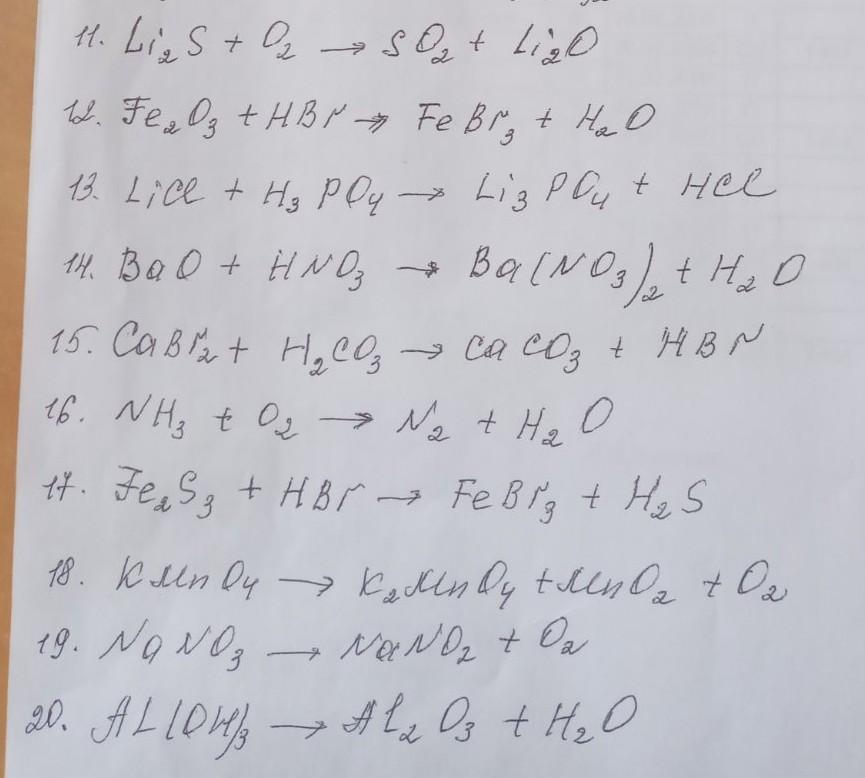 11. Li₂S + O₂ → SO₂ + Li₂O
12. Fe₂O₃ + HBr → FeBr₃ + H₂O
13. LiCl + H₃PO₄ → Li₃PO₄ + HCl
14. BaO + HNO₃ → Ba(NO₃)₂ + H₂O
15. CaBr₂ + H₂CO₃ → CaCO₃ + HBr
16. NH₃ + O₂ → N₂ + H₂O
17. Fe₂S₃ + HBr → FeBr₃ + H₂S
18. KMnO₄ → K₂MnO₄ + MnO₂ + O₂
19. NaNO₃ → NaNO₂ + O₂
20. AL(OH)₃ → Al₂O₃ + H₂O